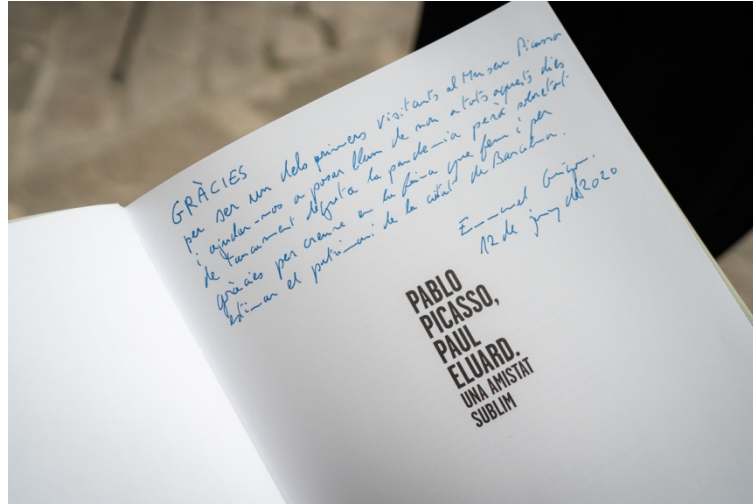 GRÀCIES
per ser un dels primers visitants al Museu Picasso
i ajudar-nos a posar llum de nou a tots aquests dies
de tancament degut a la pandemia però sobretot
gràcies per creure en la feina que fem i per
estimar el patrimoni de la ciutat de Barcelona.
Emmanuel
12 de juny de 2020
PABLO
PICASSO,
PAUL
ELUARD.
UNA AMISTAT
SUBLIM